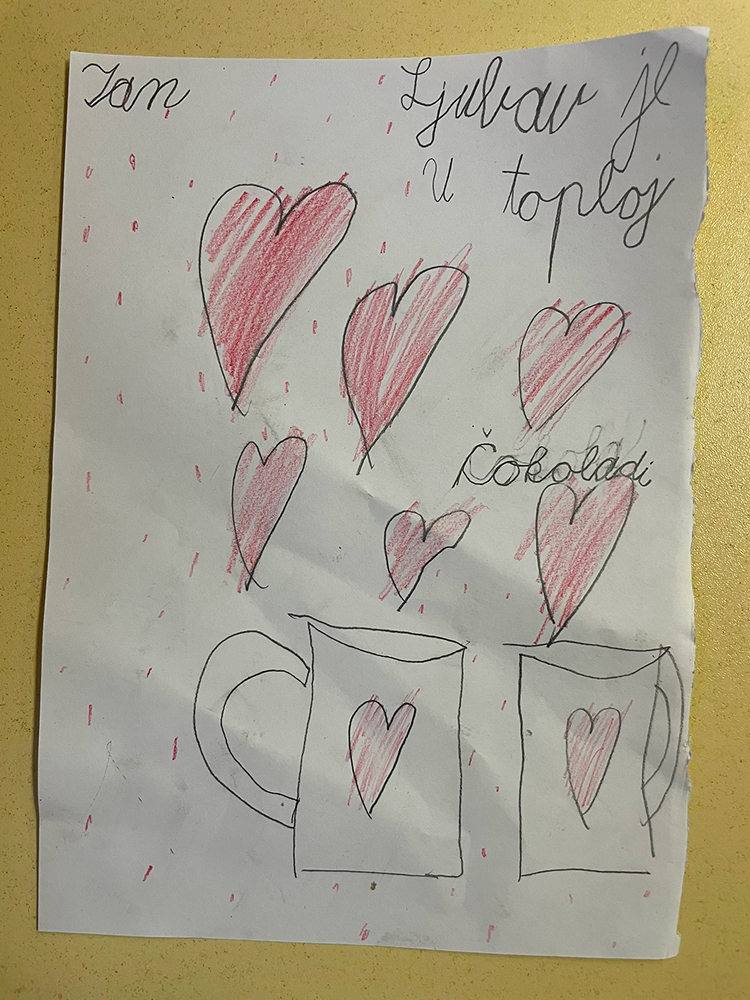 Jan
Ljubav je
u toploj
Čokoladi